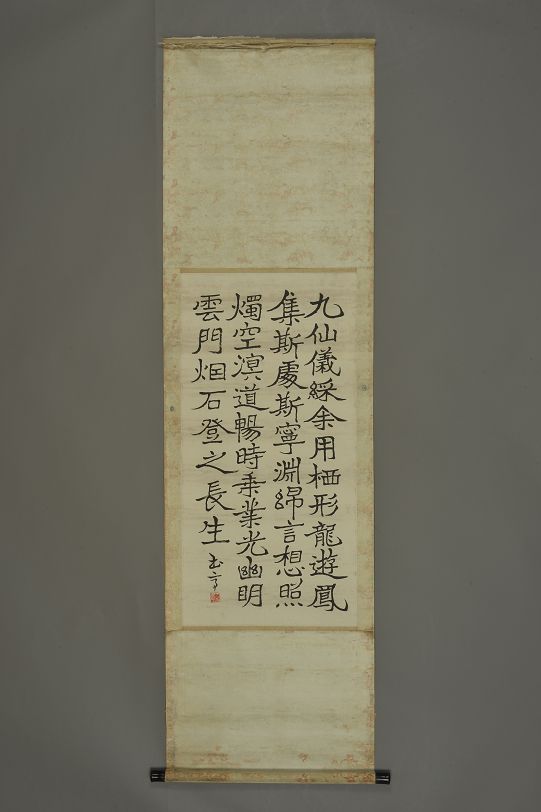 九仙儀綵余用栖形龍遊鳳
集斯處斯寧淵綿言想照
燭空溟道暢時乘業光幽明
雲門烟石登之長生